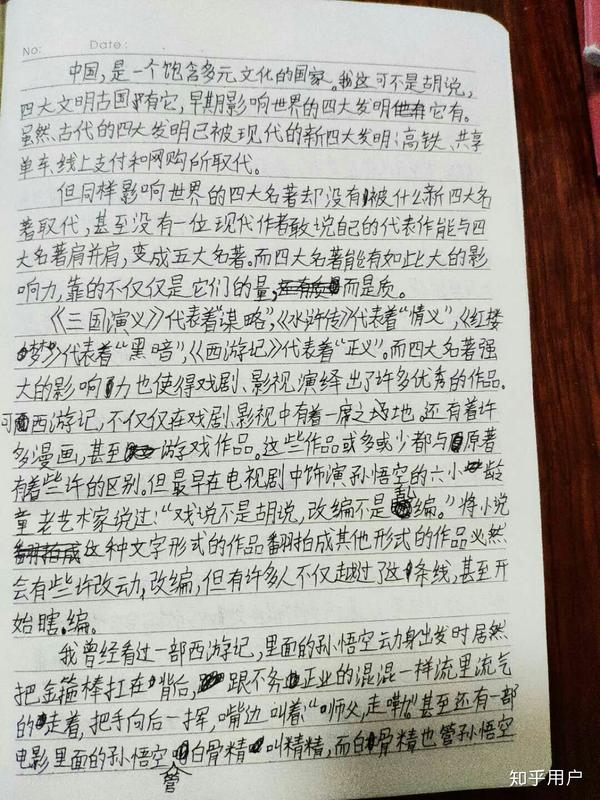 No:    Date:
中国,是一个饱含多元文化的国家。我这可不是胡说,
四大文明古国有它,早期影响世界的四大发明它有。
虽然古代的四大发明已被现代的新四大发明:高铁、共享
单车、线上支付和网购所取代。
但同样影响世界的四大名著却没有被什么新四大名
著取代,甚至没有一位现代作者敢说自己的代表作能与四
大名著肩并肩,变成五大名著。而四大名著能有如此大的影
响力,靠的不仅仅是它们的量,而是质。
《三国演义》代表着“谋略”,《水浒传》代表着“情义”,《红楼
梦》代表着“黑暗”,《西游记》代表着“正义”。而四大名著强
大的影响力也使得戏剧、影视演绎出了许多优秀的作品。
可西游记,不仅仅在戏剧、影视中有着一席之地。还有着许
多漫画,甚至游戏作品。这些作品或多或少都与原著
有着些许的区别。但最早在电视剧中饰演孙悟空的六小龄
童老艺术家说过:“戏说不是胡说,改编不是乱编。”将小说
这种文字形式的作品翻拍成其他形式的作品必然
会有些许改动,改编,但有许多人不仅越过了这条线,甚至开
始瞎编。
我曾经看过一部西游记,里面的孙悟空动身出发时居然
把金箍棒扛在背后,跟不务正业的混混一样流里流气
的走着,把手向后一挥,嘴边叫着:“师父,走嘞。”甚至还有一部
电影里面的孙悟空管白骨精叫精精,而白骨精也管孙悟空
知乎用户